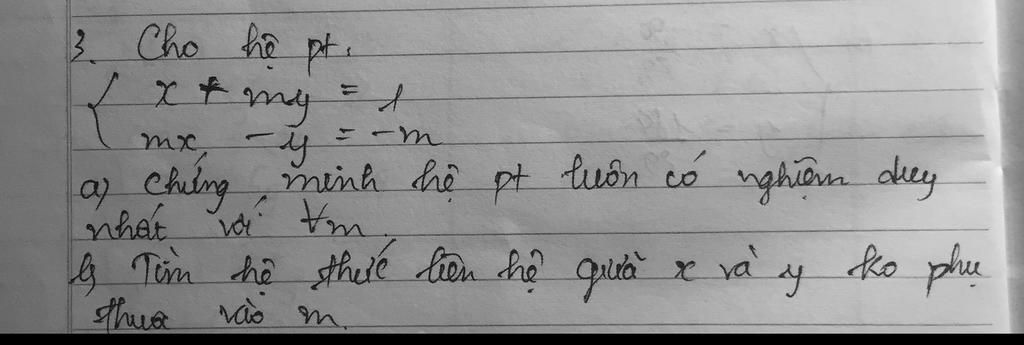 3. Cho hệ pt:
x + my = 1
mx - y = -m
a) Chứng minh hệ pt luôn có nghiệm duy
nhất với ∀m.
b) Tìm hệ thức liên hệ giữa x và y ko phụ
thuộc vào m.